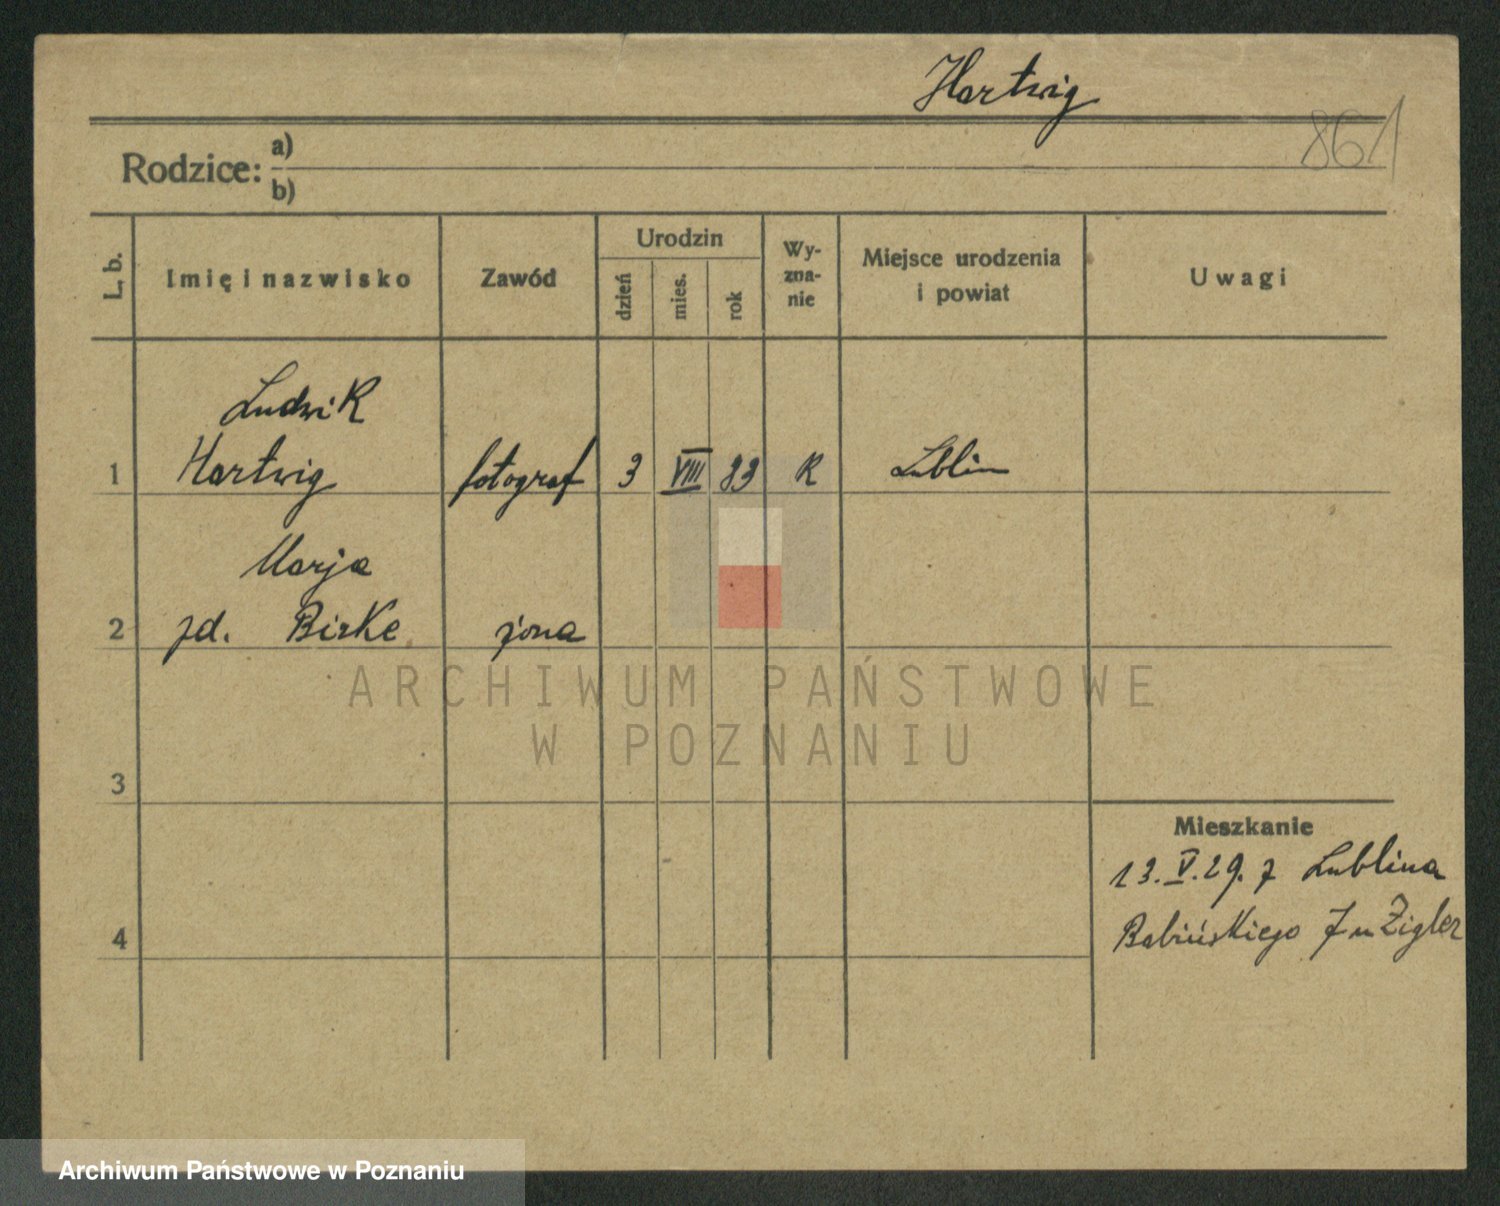 Hartwig
861
Rodzice: a)
b)
L. b.
Imię i nazwisko
Zawód
Urodzin
dzień
mies.
rok
Wy-
zna-
nie
Miejsce urodzenia
i powiat
Uwagi
Ludwik
1 Hartwig fotograf 3 VIII 83 K Lublin
Marja
2 zd. Birke żona
3
4
Mieszkanie
13.V.29. z Lublina
Babińskiego 7 u Zigler
ARCHIWUM PAŃSTWOWE
W POZNANIU
Archiwum Państwowe w Poznaniu